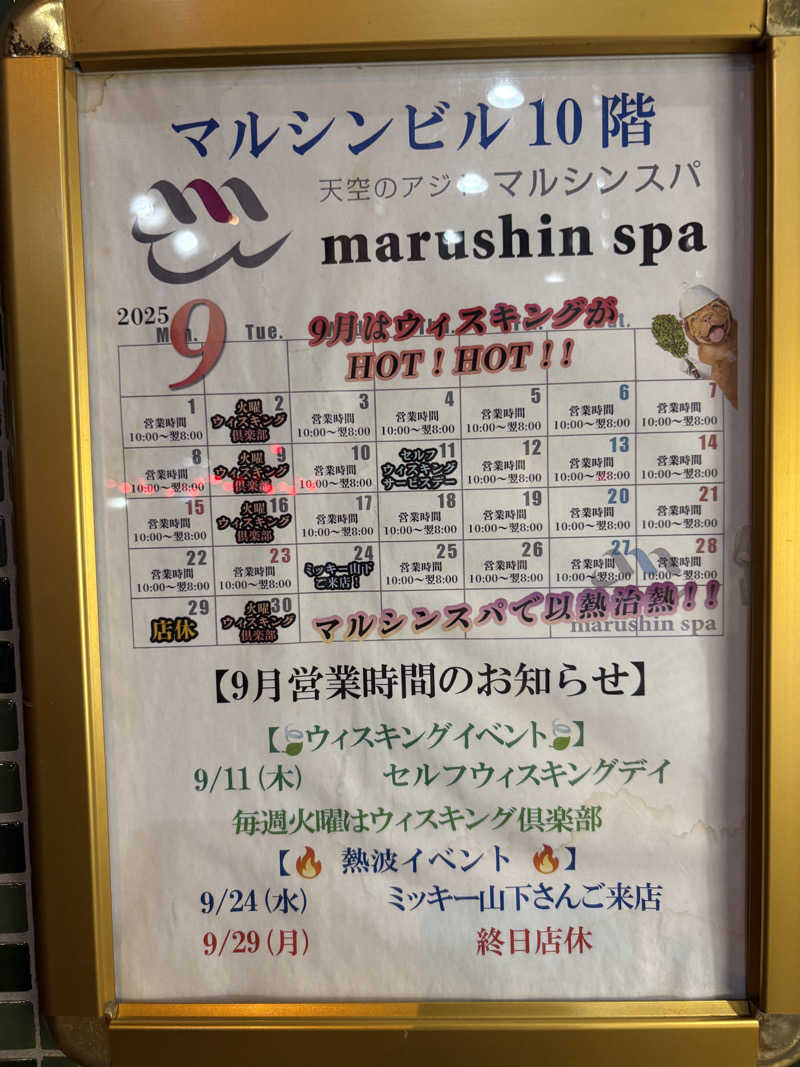 マルシンビル10階
天空のアジ マルシンスパ
marushin spa
2025
9
Tue.
9月はウィスキングが
HOT！HOT！！
1 火曜 2 3 4 5 6 7
営業時間 ウィスキング 営業時間 営業時間 営業時間 営業時間 営業時間
10:00～翌8:00 倶楽部 10:00～翌8:00 10:00～翌8:00 10:00～翌8:00 10:00～翌8:00 10:00～翌8:00
8 火曜 9 10 セルフ 11 12 13 14
営業時間 ウィスキング 営業時間 ウィスキング 営業時間 営業時間 営業時間
10:00～翌8:00 倶楽部 10:00～翌8:00 サービスデー 10:00～翌8:00 10:00～翌8:00 10:00～翌8:00
15 火曜 16 17 18 19 20 21
営業時間 ウィスキング 営業時間 営業時間 営業時間 営業時間 営業時間
10:00～翌8:00 倶楽部 10:00～翌8:00 10:00～翌8:00 10:00～翌8:00 10:00～翌8:00 10:00～翌8:00
22 23 24 25 26 27 28
営業時間 営業時間 ミッキー山下 営業時間 営業時間 営業時間 営業時間
10:00～翌8:00 10:00～翌8:00 ご来店！ 10:00～翌8:00 10:00～翌8:00 10:00～翌8:00 10:00～翌8:00
29 火曜 30
店休 ウィスキング マルシンスパで以熱治熱！！
倶楽部 marushin spa
【9月営業時間のお知らせ】
【🍃ウィスキングイベント🍃】
9/11（木） セルフウィスキングデイ
毎週火曜はウィスキング倶楽部
【🔥 熱波イベント 🔥】
9/24（水） ミッキー山下さんご来店
9/29（月） 終日店休